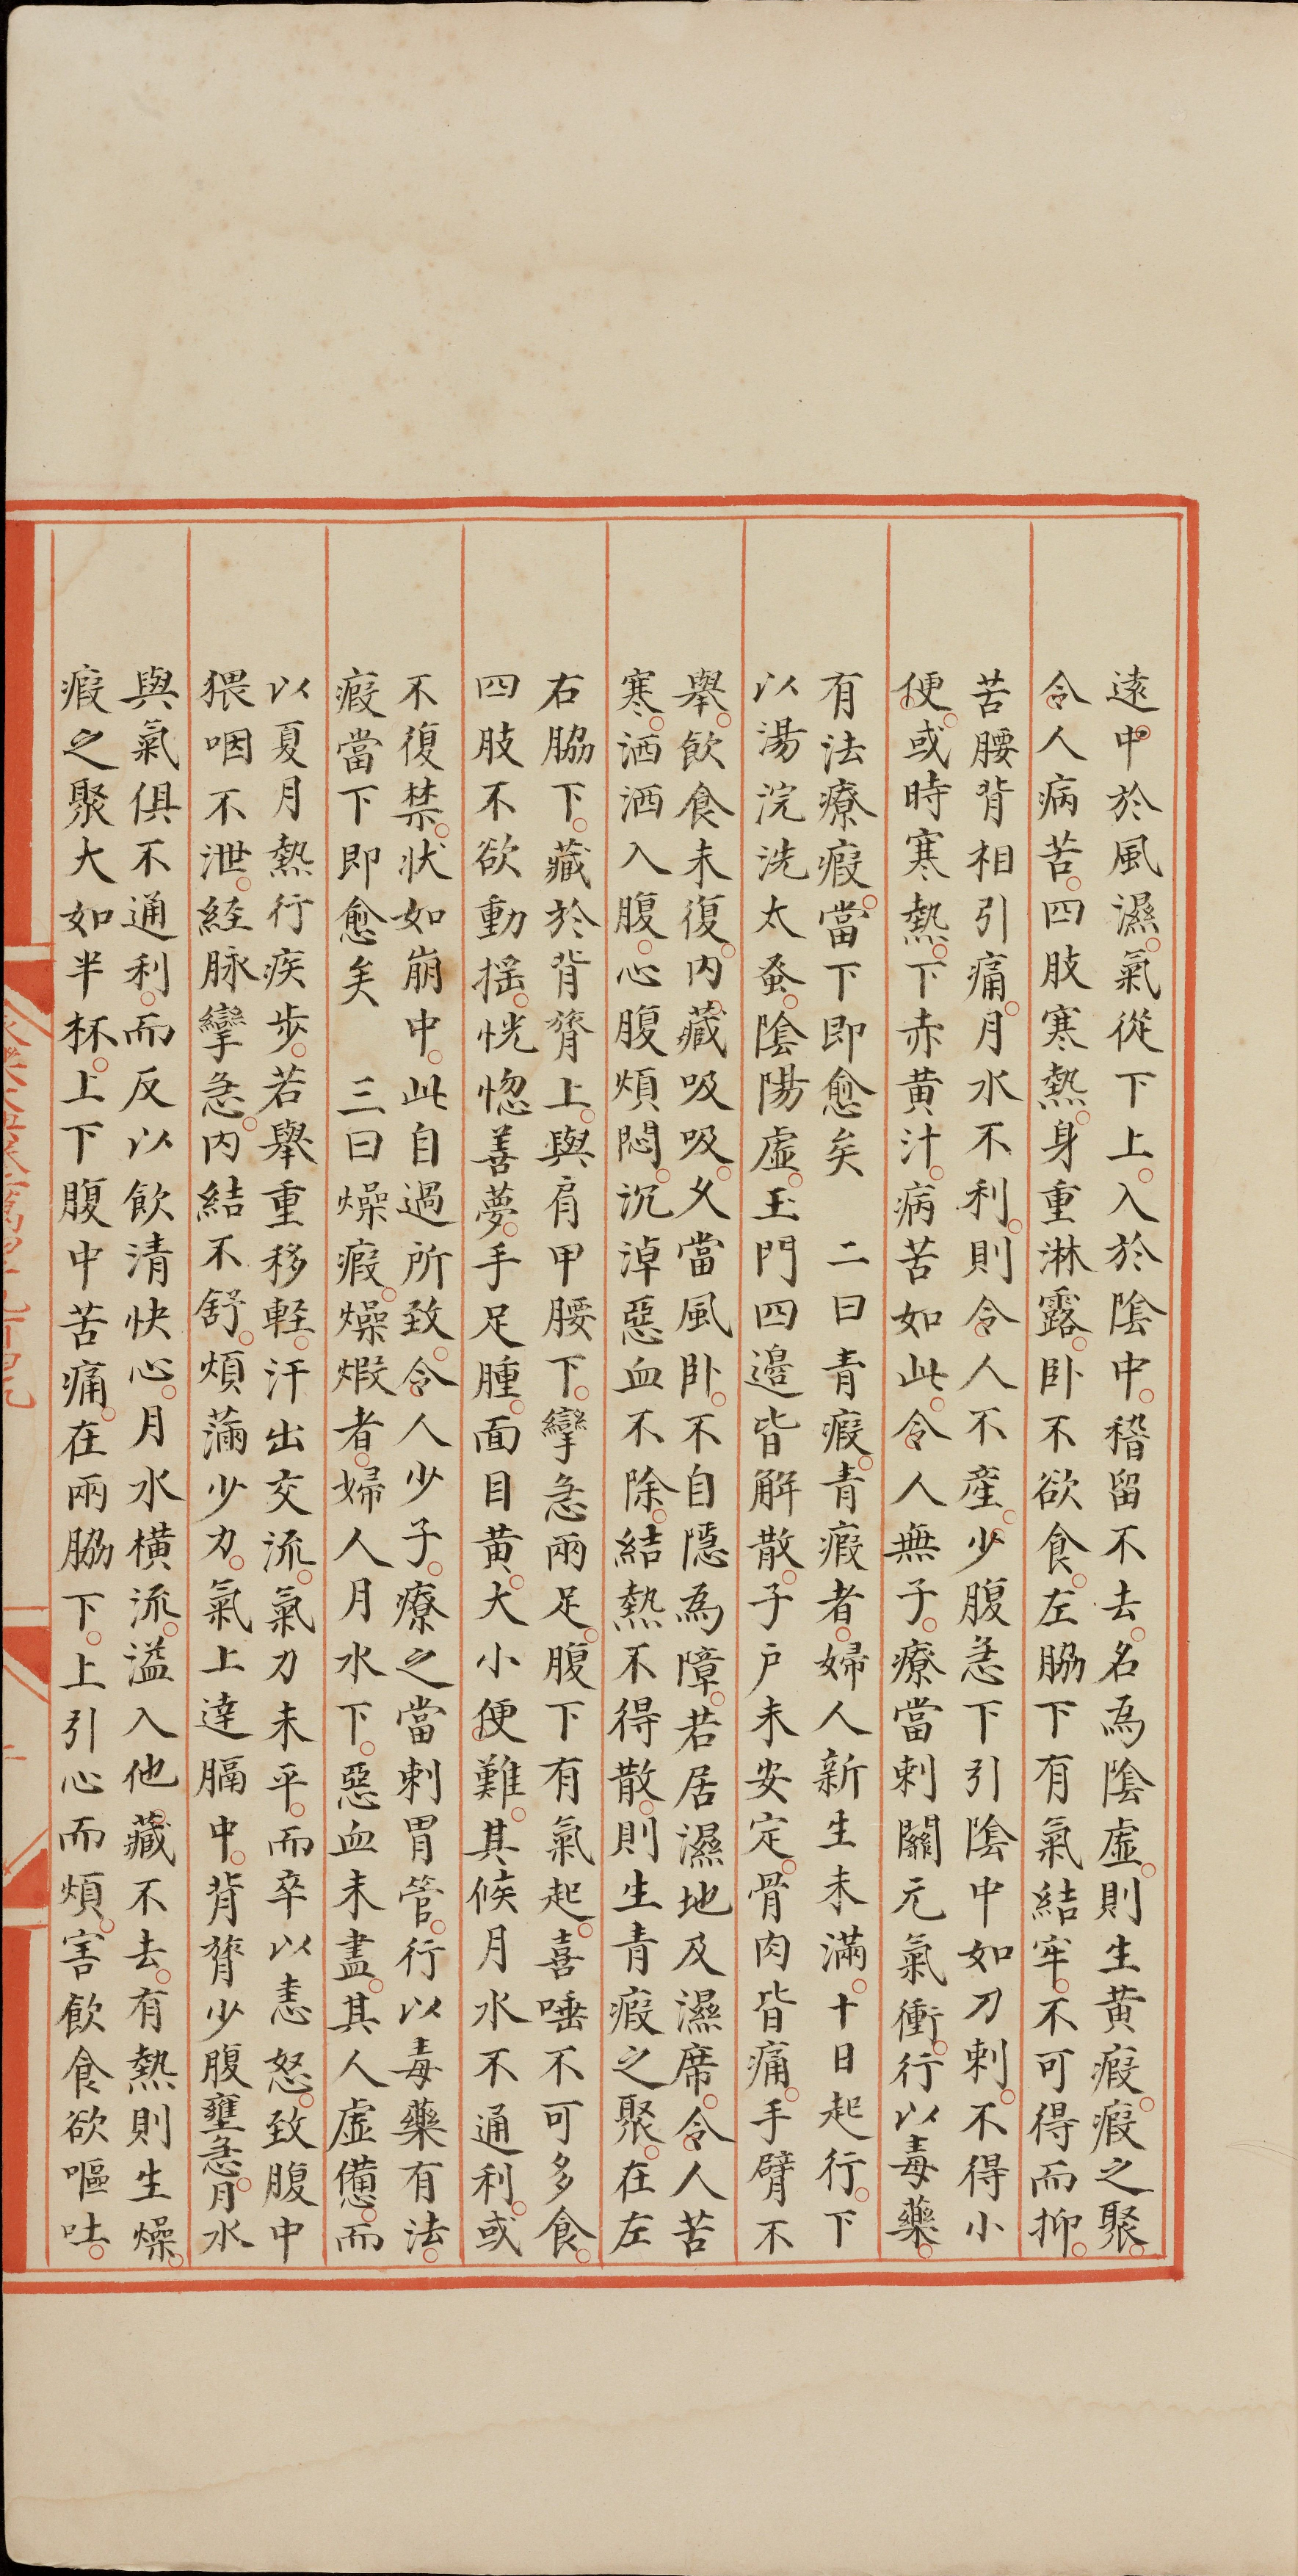 遠中於風濕氣從下上入於隂中稽留不去名為隂虛則生黃瘕瘕之聚
令人病苦四肢寒熱身重淋露卧不欲食左脇下有氣結牢不可得而抑
苦腰背相引痛月水不利則令人不產少腹急下引隂中如刀刺不得小
便或時寒熱下赤黃汁病苦如此令人無子療當刺關元氣衝行以毒藥
有法療瘕當下即愈矣　二曰青瘕青瘕者婦人新生未滿十日起行下
以湯浣洗太蚤隂陽虛玉門四邊皆解散子戶未安定骨肉皆痛手臂不
舉飲食未復内藏吸吸又當風卧不自隱為障若居濕地及濕席令人苦
寒洒洒入腹心腹煩悶沉淖惡血不除結熱不得散則生青瘕之聚在左
右脇下藏於背膂上與肩甲腰下攣急兩足腹下有氣起喜唾不可多食
四肢不欲動搖恍惚善夢手足腫面目黃大小便難其候月水不通利或
不復禁狀如崩中此自過所致令人少子療之當刺胃管行以毒藥有法
瘕當下即愈矣　三曰燥瘕燥煆者婦人月水下惡血未盡其人虛憊而
以夏月熱行疾步若舉重移輕汗出交流氣刀未平而卒以恚怒致腹中
猥咽不泄経脉攣急内結不舒煩滿少力氣上達膈中背膂少腹壅急月水
與氣俱不通利而反以飲清快心月水橫流溢入他藏不去有熱則生燥
瘕之聚大如半杯上下腹中苦痛在兩脇下上引心而煩害飲食欲嘔吐